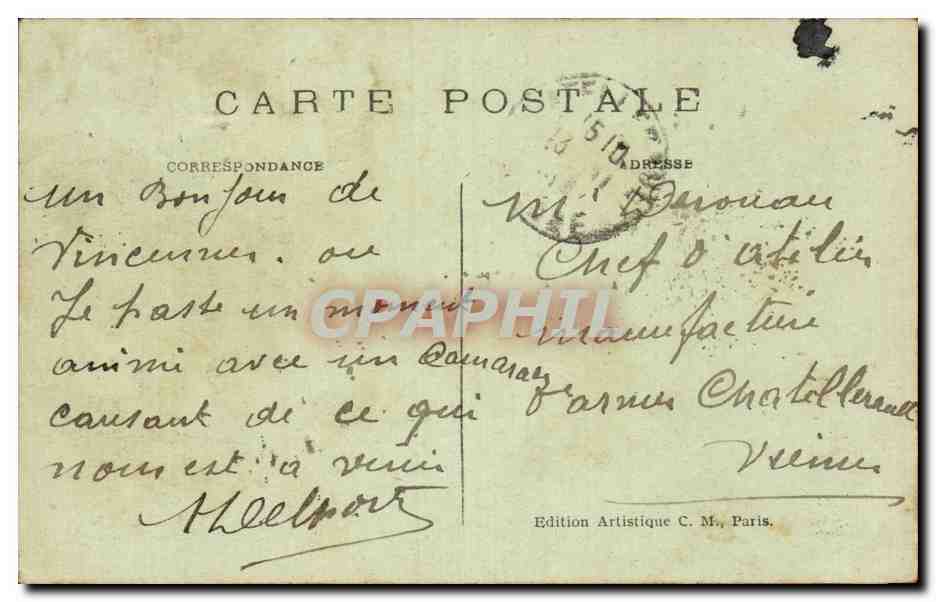 CARTE POSTALE
CORRESPONDANCE
un Bonjour de
Vincennes. ou
Je passe un moment
animé avec un Camarade
causant de ce qui
nous est à venir
ADelport
ADRESSE
Mr Derouau
Chef d'atelier
manufacture
d'armes Chatellerault
Vienne
Edition Artistique C. M., Paris.
CPAPHIL
15 10